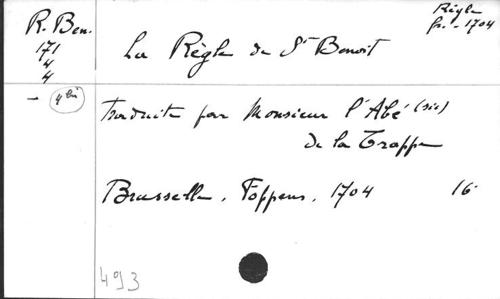 R. Ben.
171
4
4
- 4 bis
Règle
fr. - 1704
La Règle de St Benoit
Traduite par Monsieur l'Abé (sic)
de la Trappe
Brusselle, Foppens, 1704 16°
493